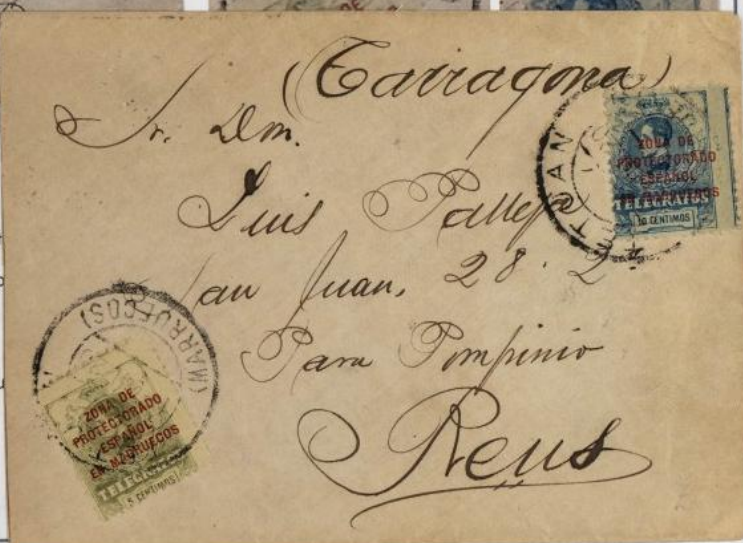 (Tarragona)
Sr. Don.
Luis Pallejà
San Juan, 28. 2º
Para Pompinio
Reus
TETUAN
ZONA DE
PROTECTORADO
ESPAÑOL
EN MARRUECOS
TELEGRAFOS
10 CENTIMOS
(MARRUECOS)
ZONA DE
PROTECTORADO
ESPAÑOL
EN MARRUECOS
TELEGRAFOS
5 CENTIMOS